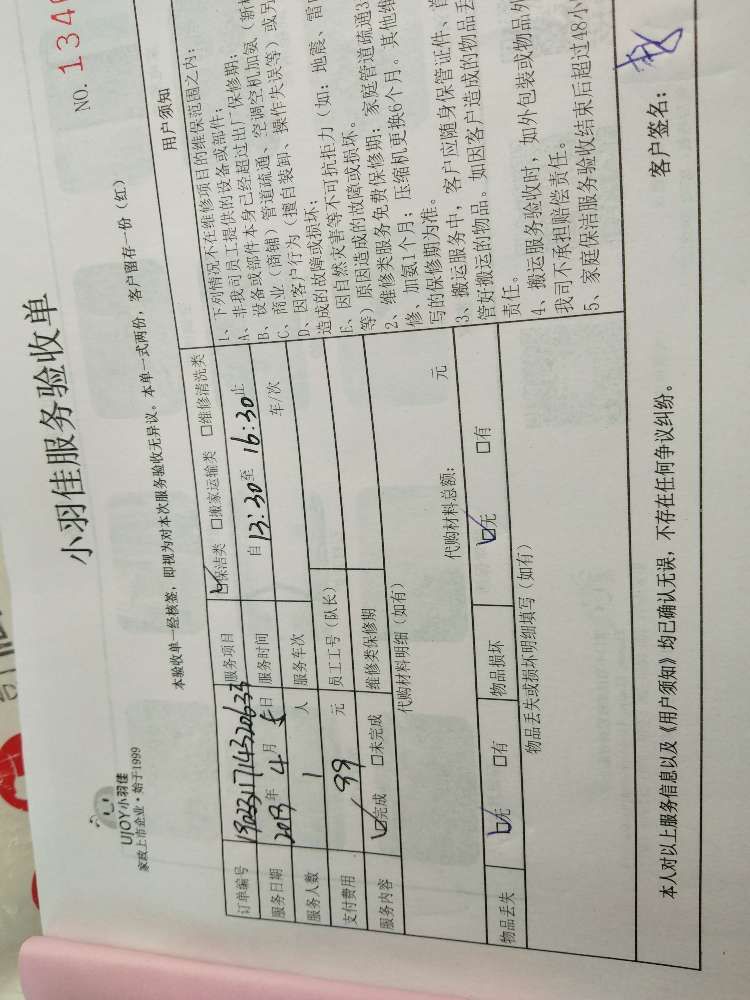 小羽佳服务验收单
NO. 134
UJOY小羽佳
家政上市企业·始于1999
本验收单一经核签，即视为对本次服务验收无异议。本单一式两份，客户留存一份（红）
订单编号
服务项目 ☑保洁类 □搬家运输类 □维修清洗类
用户须知
服务日期 2019年 4月 5日
服务时间 自13:30至16:30止
服务人数 1 人
服务车次 车/次
支付费用 99 元
员工工号（队长）
服务内容 ☑完成 □未完成
维修类保修期
代购材料明细（如有）
代购材料总额： 元
物品丢失 ☑无 □有
物品损坏 ☑无 □有
物品丢失或损坏明细填写（如有）
1、下列情况不在维修项目的维保范围之内：
A、非我司员工提供的设备或部件；
B、设备或部件本身已经超过出厂保修期；
C、商业（商铺）管道疏通、空调空机加氨（新
D、因客户行为（擅自装卸、操作失误等）或另
造成的故障或损坏；
E、因自然灾害等不可抗拒力（如：地震、雷
等）原因造成的故障或损坏。
2、维修类服务免费保修期：家庭管道疏通3
修，加氨1个月；压缩机更换6个月。其他维
写的保修期为准。
3、搬运服务中，客户应随身保管证件、首
管好搬运的物品。如因客户造成的物品丢
责任。
4、搬运服务验收时，如外包装或物品外
我司不承担赔偿责任。
5、家庭保洁服务验收结束后超过48小
本人对以上服务信息以及《用户须知》均已确认无误，不存在任何争议纠纷。
客户签名：